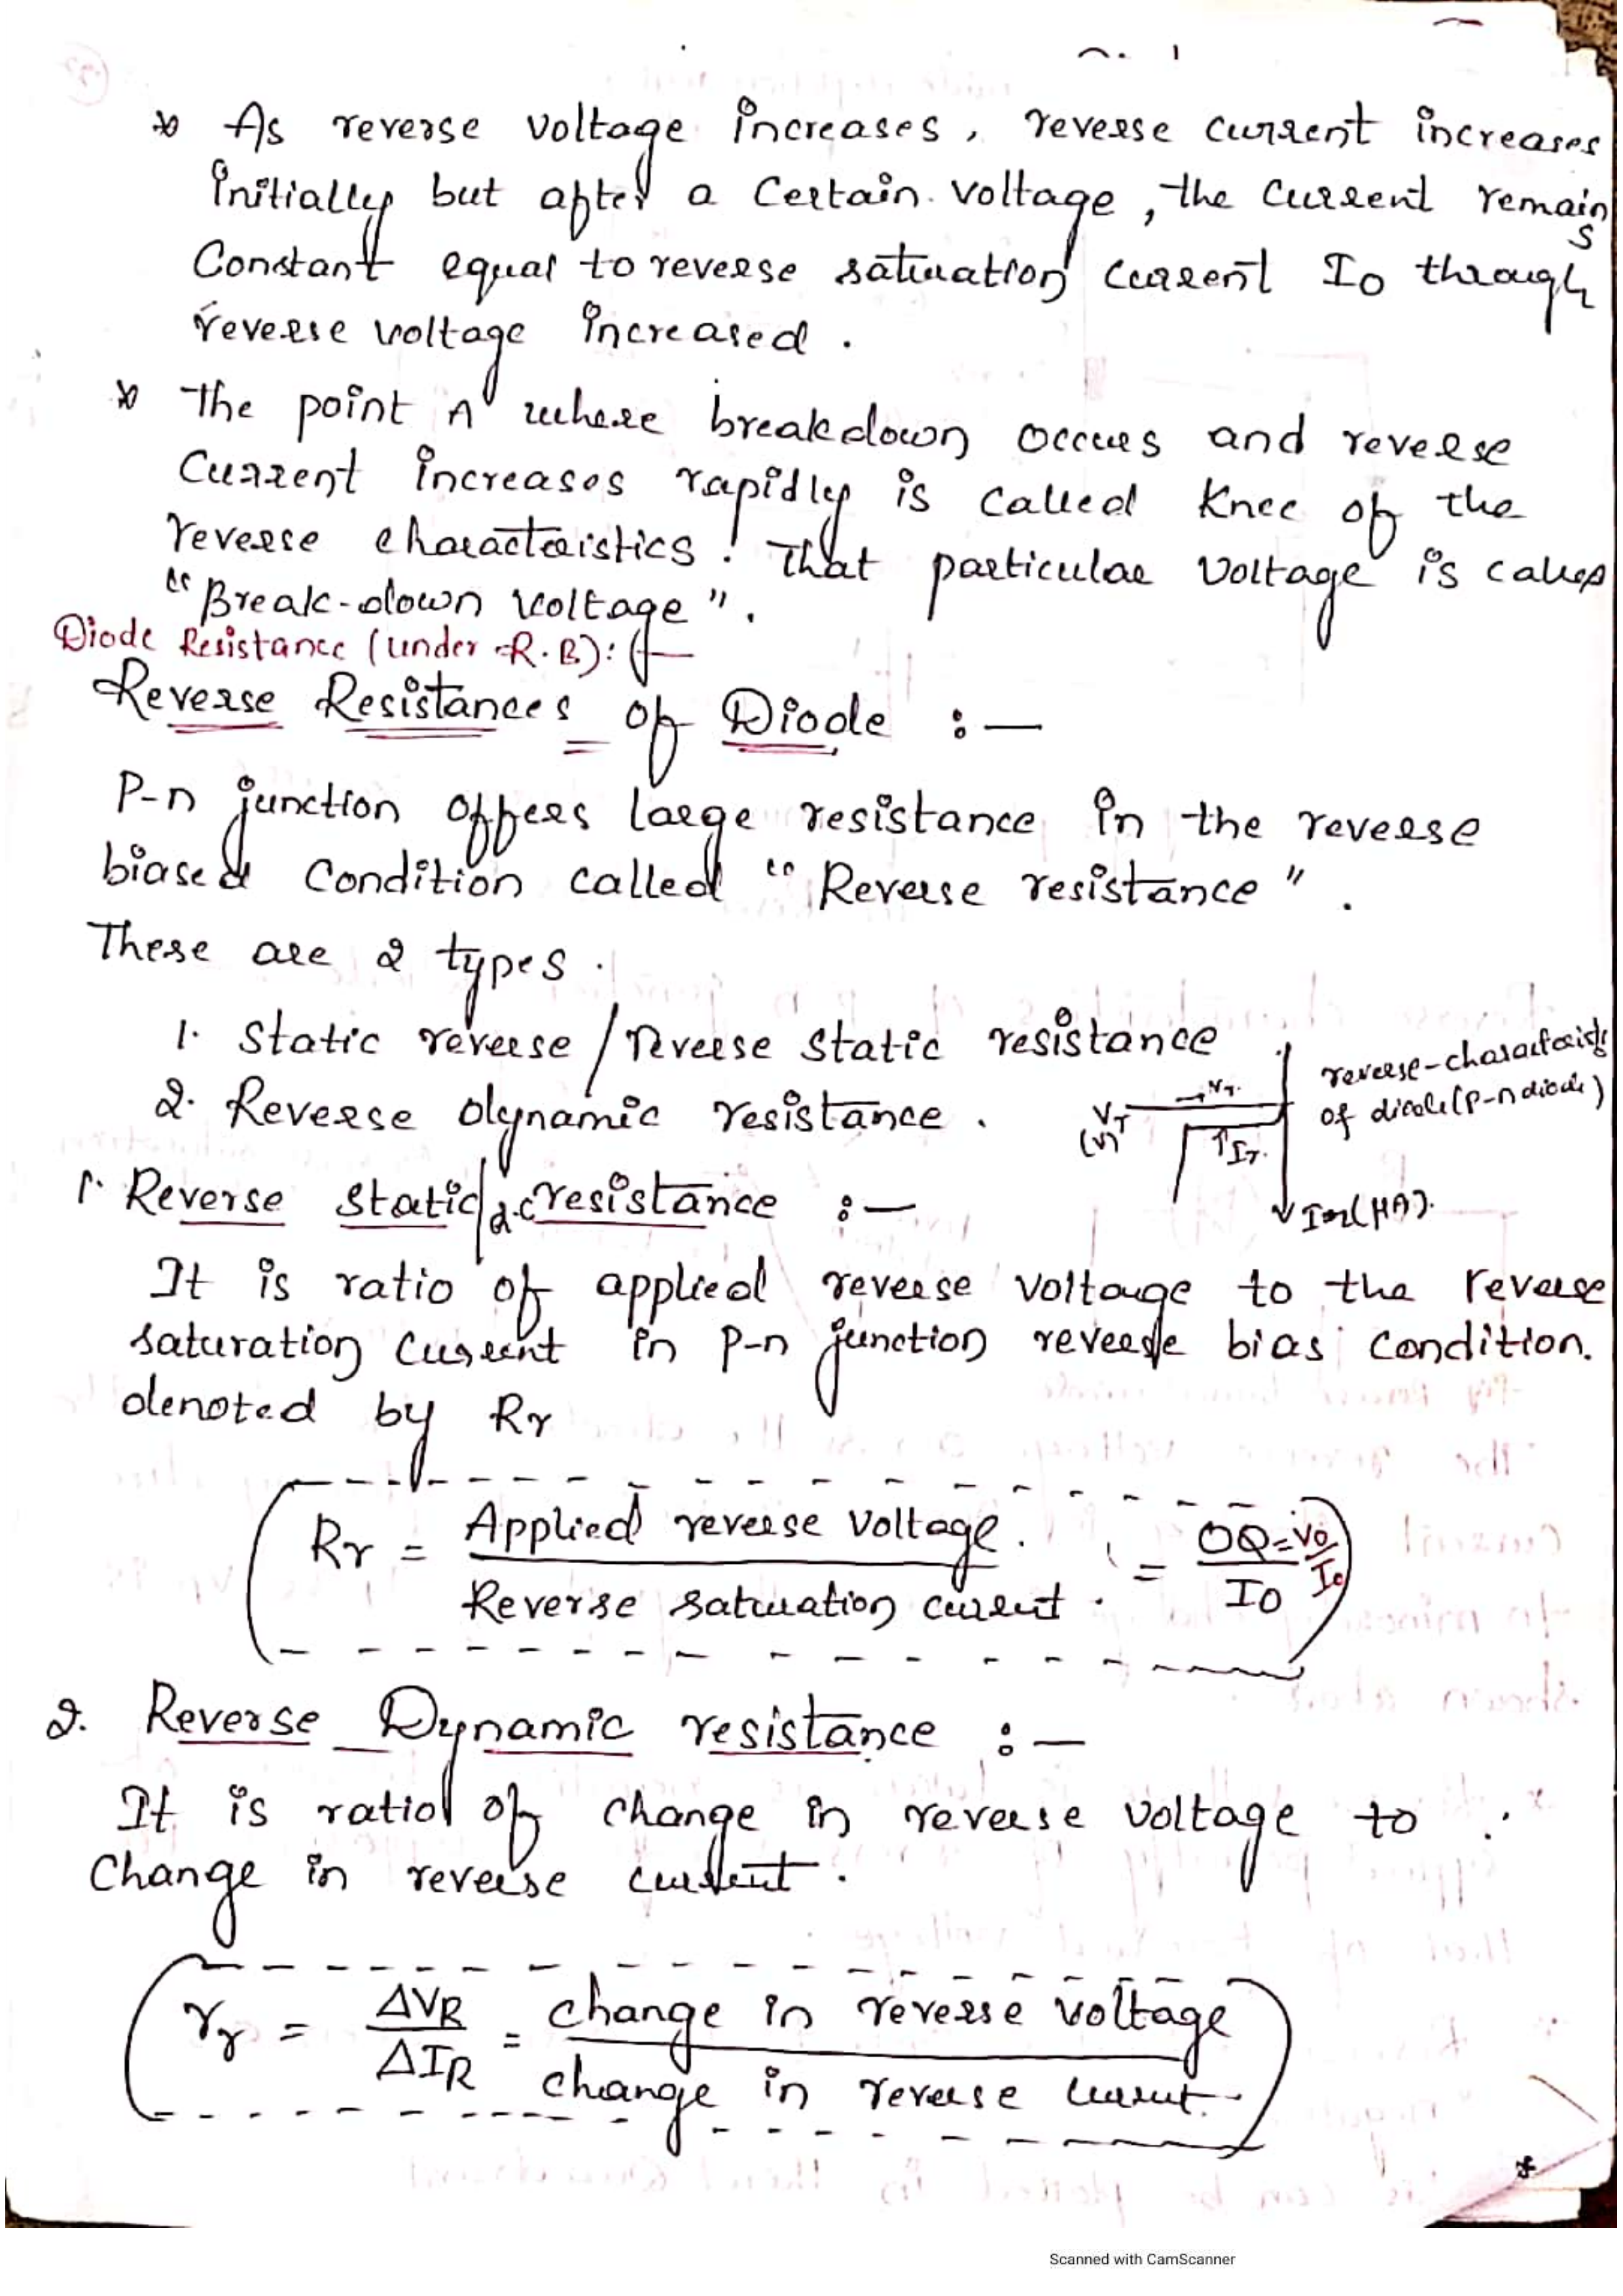 * As reverse voltage increases, reverse current increases
initially but after a certain voltage, the current remains
Constant equal to reverse saturation current Io through
reverse voltage increased.
* The point A where breakdown occurs and reverse
Current increases rapidly is called Knee of the
reverse characteristics. That particular voltage is called
"Break-down voltage".
Diode Resistance (under R.B):-
Reverse Resistances of Diode :-
P-n junction offers large resistance in the reverse
biased condition called "Reverse resistance".
These are 2 types.
1. Static reverse / Reverse static resistance
2. Reverse dynamic resistance.
reverse-characteristics
of diode (p-n diode)
Vr
(V)
Vr.
Ir.
Ir (μA).
1. Reverse static/d.c resistance :-
It is ratio of applied reverse voltage to the reverse
saturation current in p-n junction reverse bias condition.
denoted by Rr
Rr = Applied reverse voltage. / Reverse saturation current. = OQ / IO = Vo / Io
2. Reverse Dynamic resistance :-
It is ratio of change in reverse voltage to
Change in reverse current.
rr = ΔVR / ΔIR = change in reverse voltage / change in reverse current.
Scanned with CamScanner